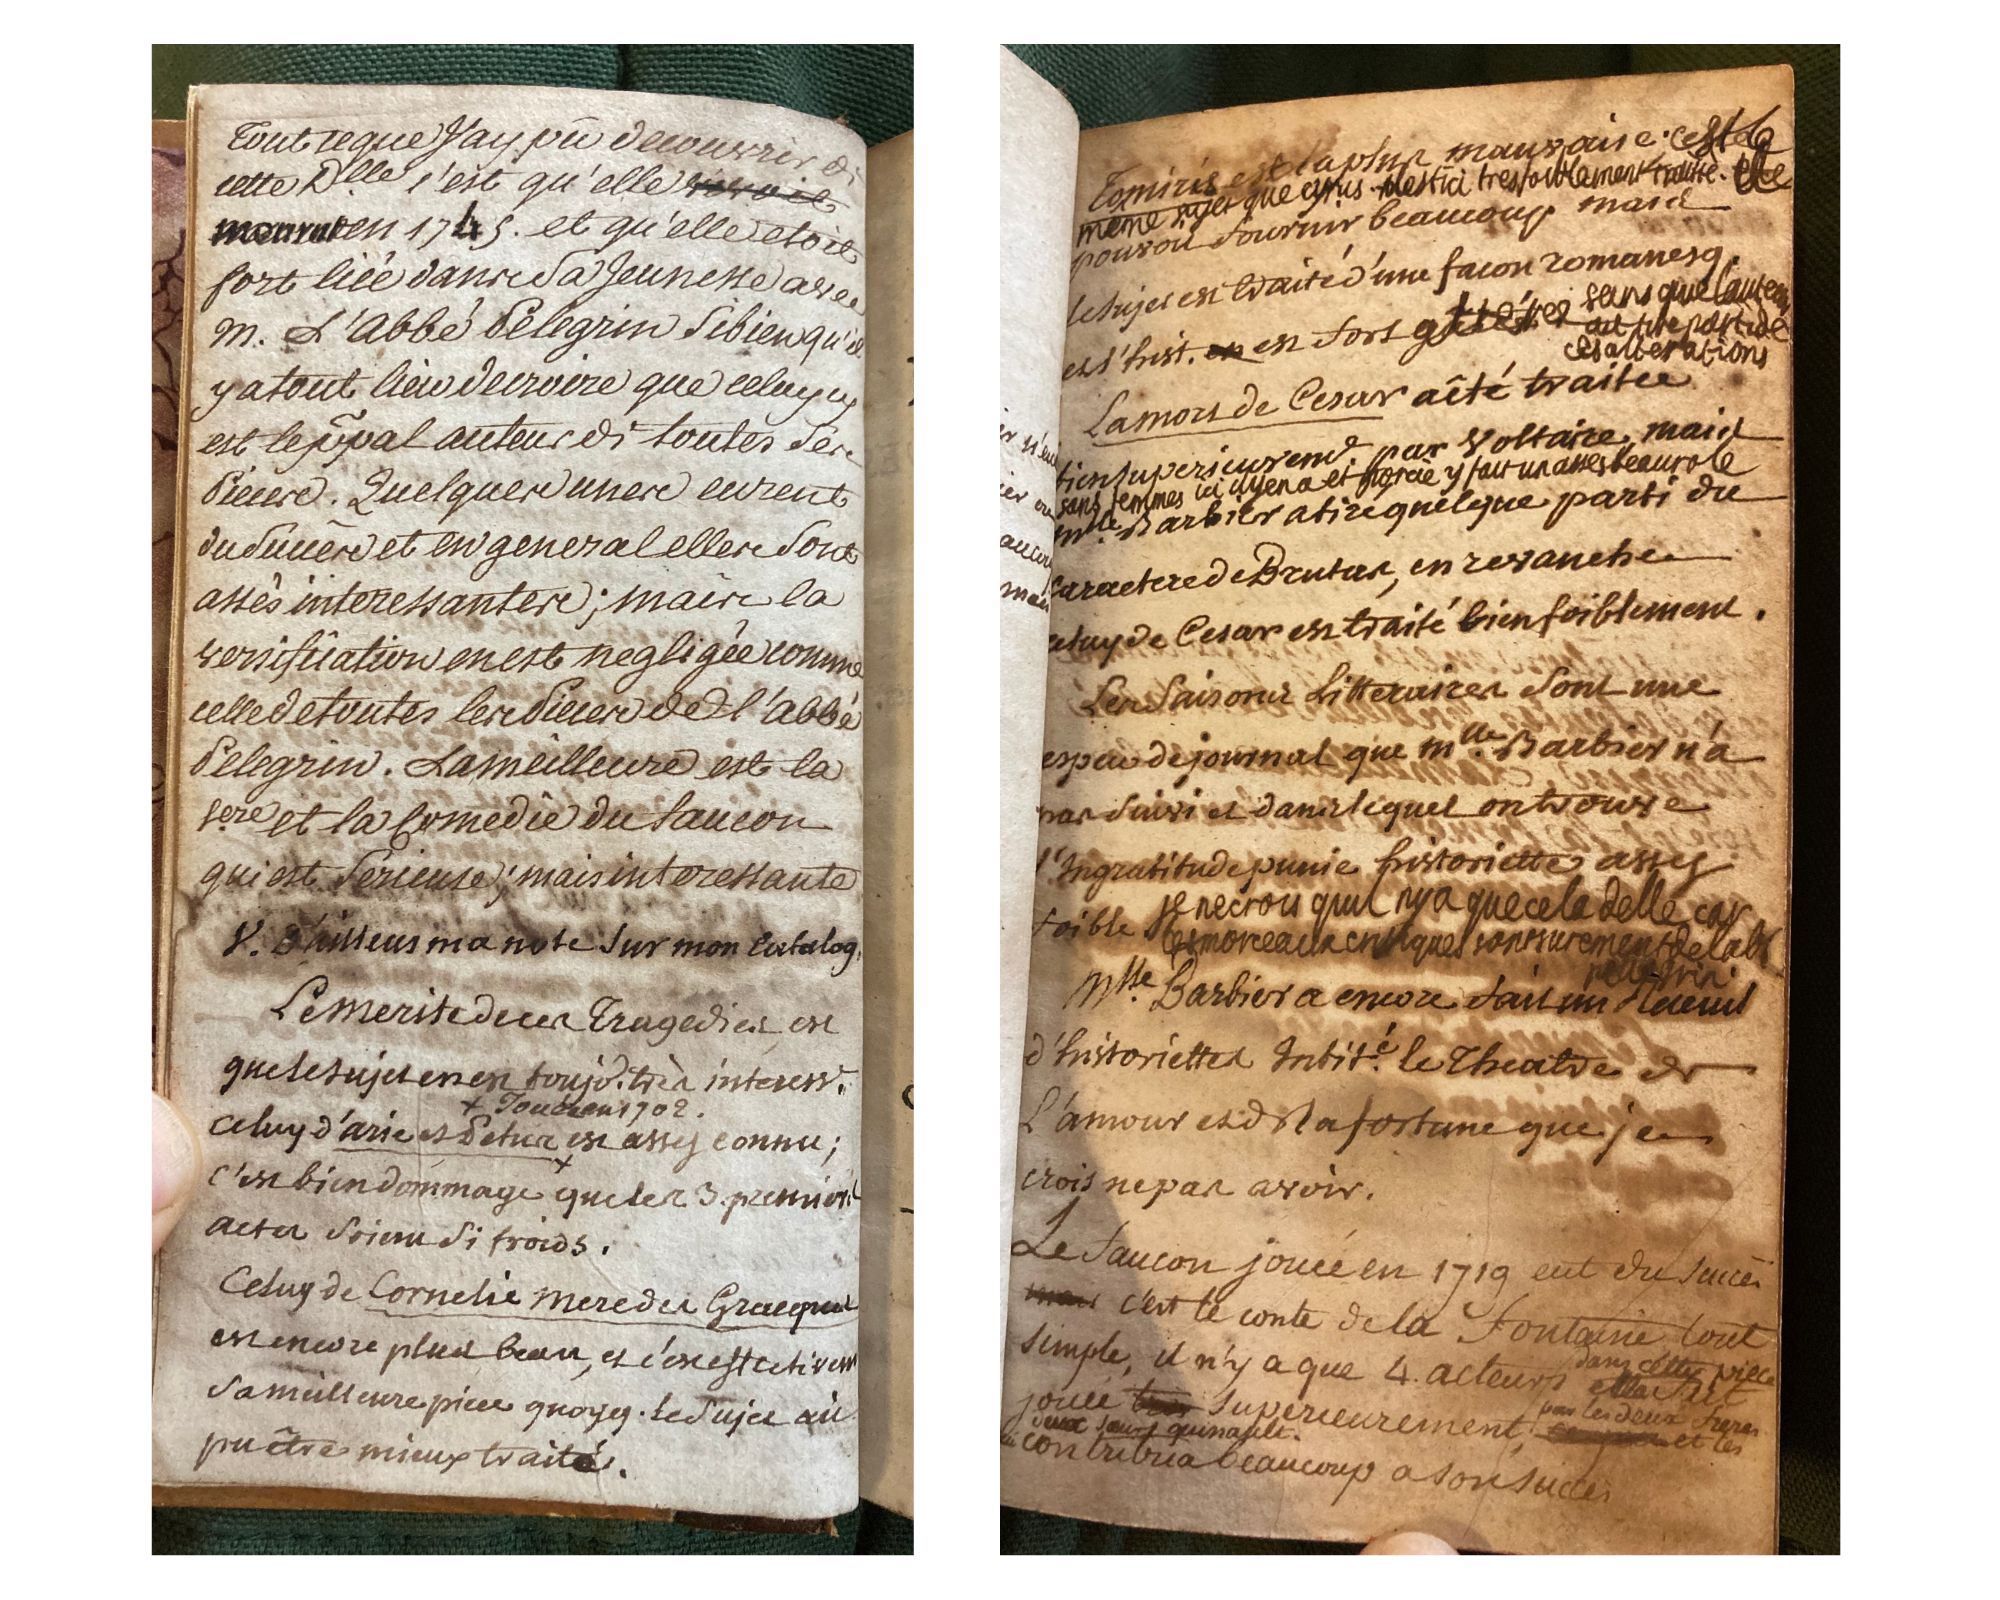 Tout ceque J'ay pû decouvrir di
cette Dlle c'est qu'elle vivoit
mourut en 1745. et qu'elle etoit
fort liée dans Sa Jeunesse avec
M. L'Abbé Pelegrin Sibien qu'il
y atout lieu decroire que celuycy
est le p̃pal auteur di toutes Ses
Pieces. Quelques unes eurent
du Succès et en general elles Sont
assés interessantes; mais la
versification enest negligée comme
celle detoutes les Pieces de l'Abbé
Pelegrin. La meilleure est la
1ere et la Comedie du faucon
qui est Serieuse, mais interessante
V. D'ailleurs ma note sur mon Catalog.
Le Merite deces Tragedies est
que le Sujet en est toujo. très interess.
+ Jouée en 1702.
Celuy d'arie et Petus est assez connu;
+
c'est bien dommage que les 3. premiers
actes Soient Si froids.
Celuy de Cornelie mere des Gracques
est encore plus beau, et c'est
Sa meilleure piece quoyq. le Sujet aû
pu être mieux traité.
Tomiris est la plus mauvaise. c'est le
meme sujet que cyrus. il est ici tres foiblement traité. elle
pouvoit fournir beaucoup mais
le Sujet est traité d'une facon romanesq.
et l'hist. en est fort sans que l'auteur
ait tiré parti de
ces alterations
La mort de Cesar a êté traitée
bien Superieurem.t par Voltaire, mais
sans femmes ici il y en a et porcie y fait un asses beau role
Mlle. Barbier a tiré quelque parti du
Caractere de Brutus, en revanche
celuy de Cesar est traité bien foiblement.
Les Saisons Litteraires Sont une
espece de journal que Mlle. Barbier n'a
pas Suivi et dans lequel on trouve
l'Ingratitude punie historiette assez
foible je ne crois qu'il n'y a que cela d'elle car
les morceaux critiques sont surement de labbé
pellegrin
Mlle. Barbier a encore fait un Recueil
d'historiettes Intit.é le Theatre de
L'amour et de la fortune que je
crois ne pas avoir.
Le faucon jouée en 1719 eut du succès
mais c'est le conte de la Fontaine tout
simple, il n'y a que 4. acteurs dans cette piece
elle fut
jouée tres superieurement, par les deux freres
et les
deux soeurs quinault.
contribua beaucoup a son succès